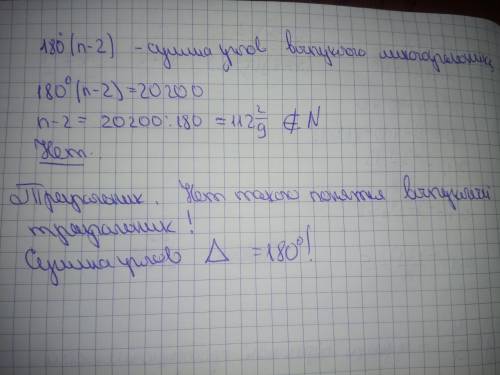 180°(n-2) - сумма углов выпуклого многоугольника
180°(n-2)=20200
n-2 = 20200:180 = 112 2/9 ∉ N
Нет.
Треугольник. Нет такого понятия выпуклый
треугольник!
Сумма углов Δ =180°!